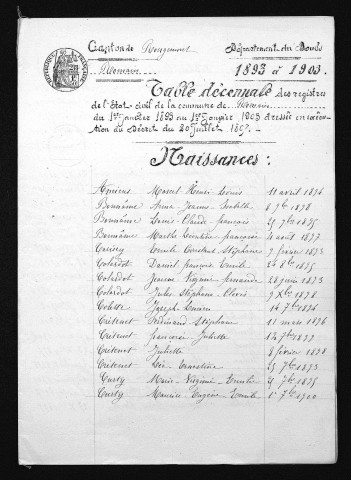 Canton de Rougemont
Département du Doubs
1893 à 1903.
Table décennale des registres
de l'état-civil de la commune de
du 1er janvier 1893 au 1er janvier 1903 dressée en exécu-
tion du Décret du 20 juillet 1807.
Naissances:
Marcel Henri Louis 11 avril 1896
Bonnaime Anne Jeanne 6 9bre 1898
Bonnaime Louis Claude françois 1895
Bonnaime Marthe françoise 4 août 1897
Emile Stéphane 7 février 1893
Colardot Daniel françois Emile 1895
Colardot Jeanne Virginie 28 juin 1893
Colardot Jules Stéphane Clovis 7 Xbre 1898
Colette Joseph Lucien 14 7bre 1896
Crétenet Ferdinand Stéphane 11 mars 1896
Crétenet françoise Juliette 1897
Crétenet Juliette 8 février 1898
Crétenet Ernestine 25 7bre 1893
Curty Marie Virginie Emilie 1895
Curty Maurice Eugène Emile 1er 7bre 1900